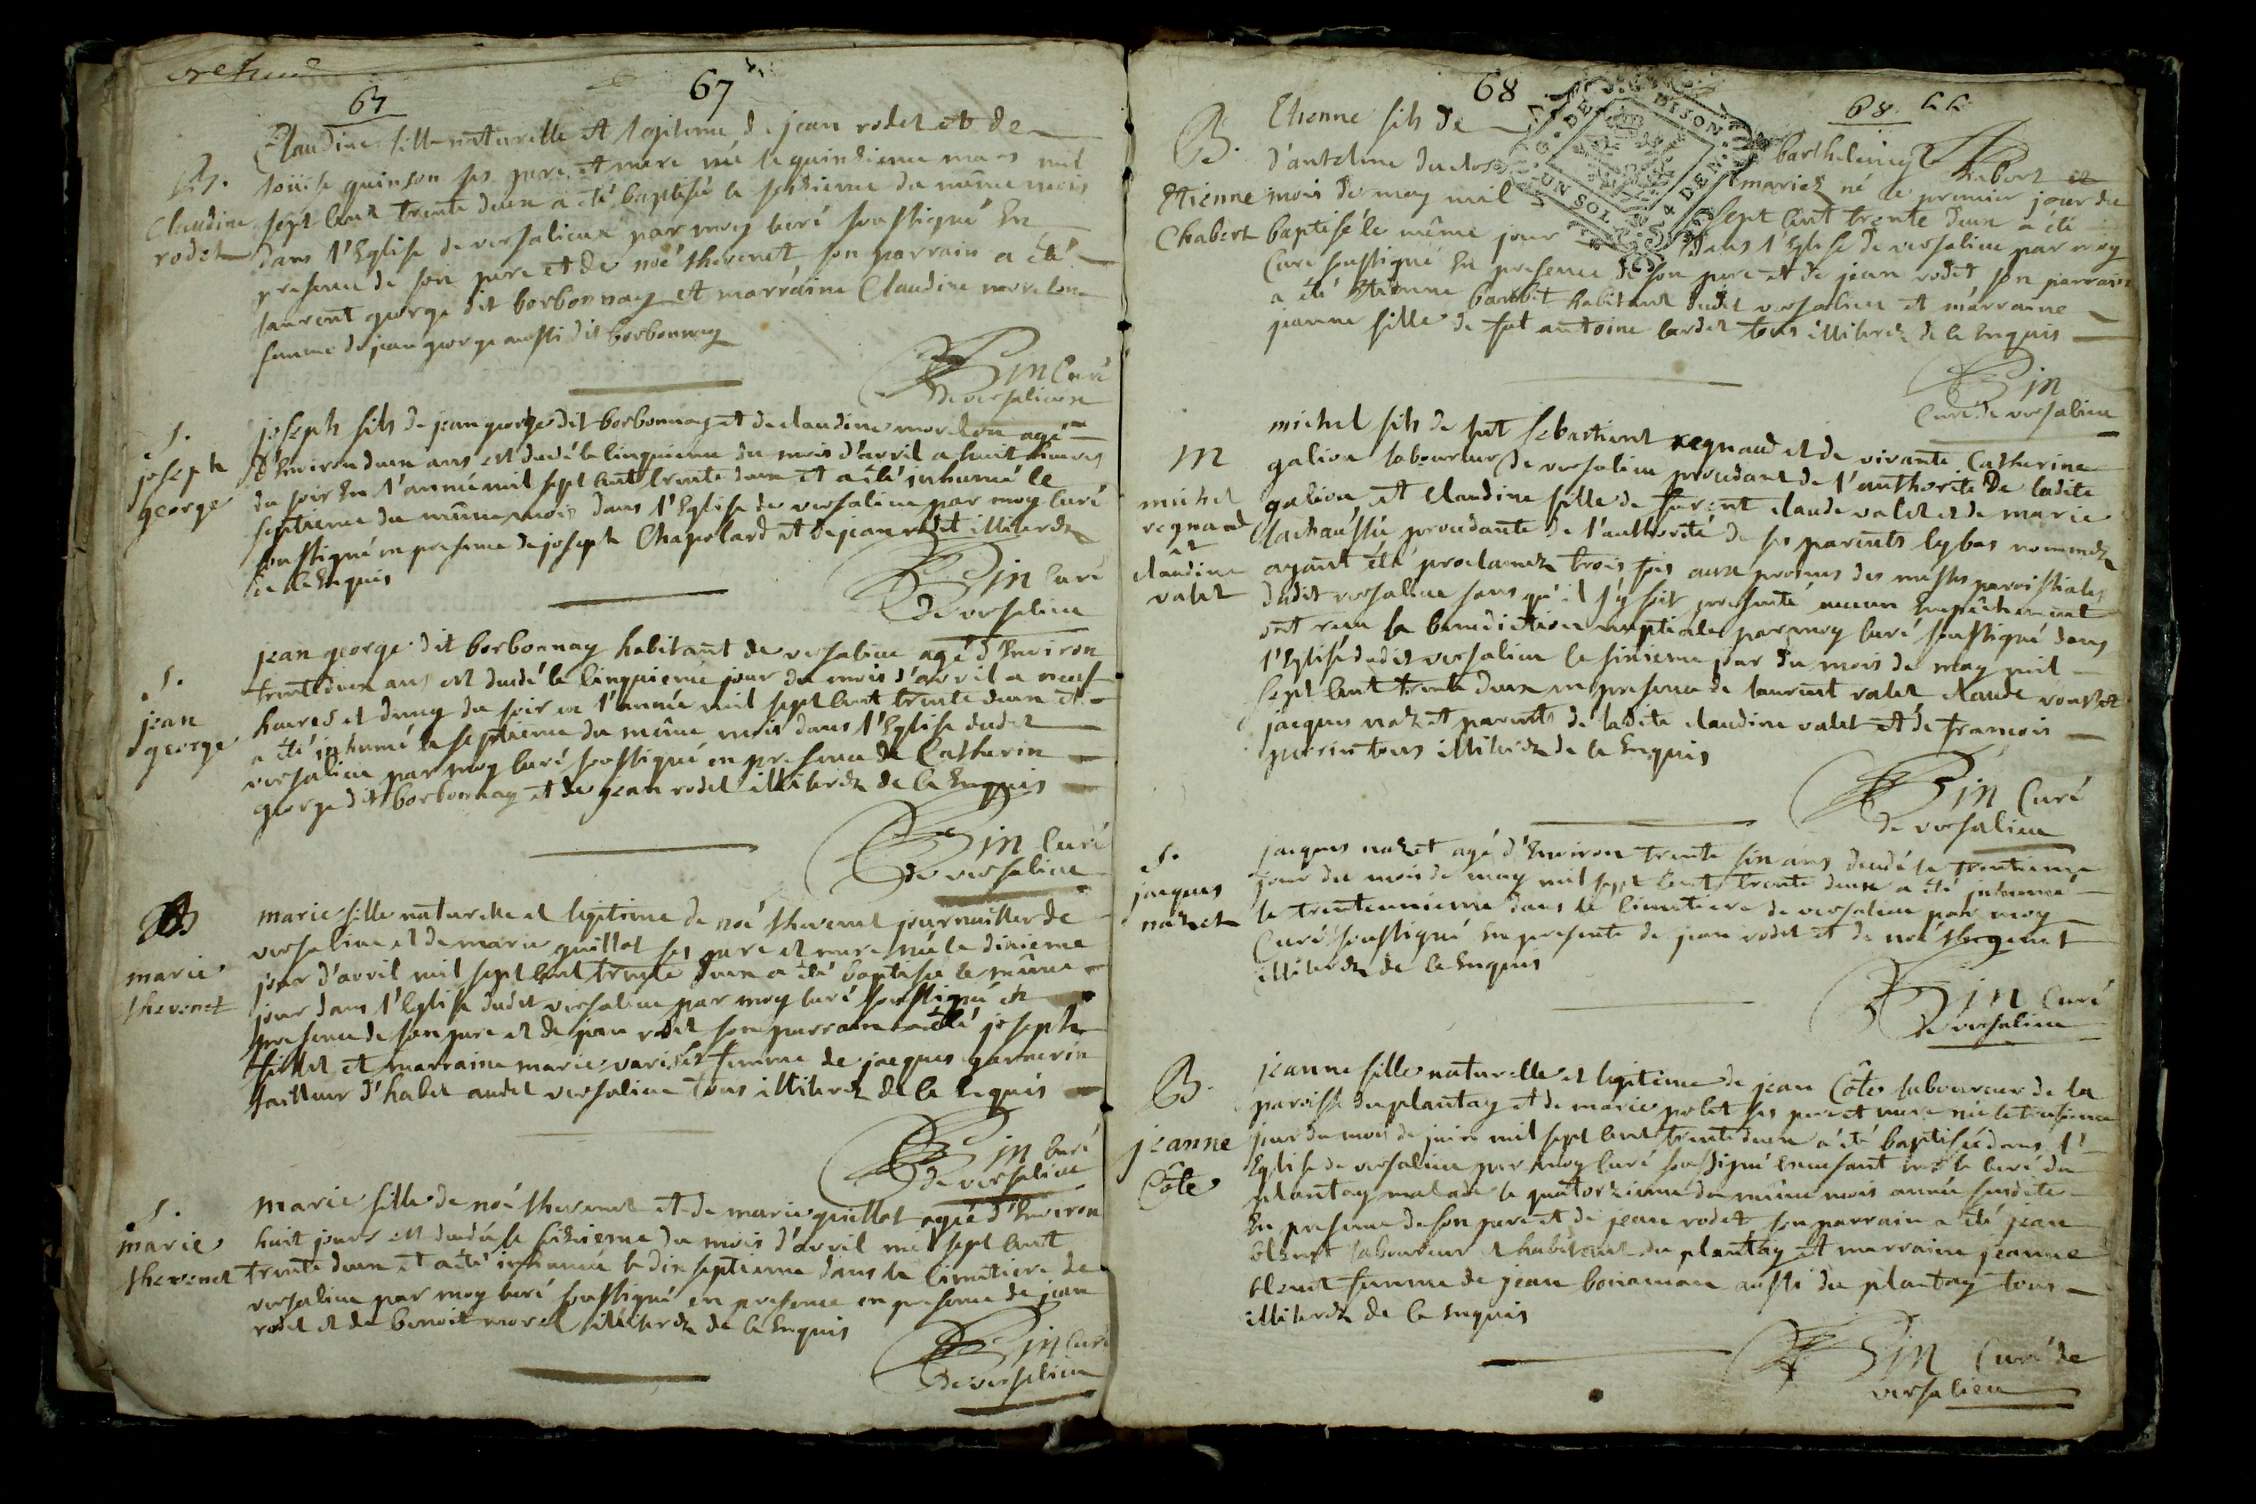 67
67
Claudine fille naturelle et legitime de jean rodet et de
B.
loüise quinson ses pere et mere née le quinzieme mars mil
Claudine
rodet
sept cent trente deux a été baptisé le seizieme du même mois
dans l'Eglise de versalieu par moy curé soussigné En
presence de son pere et de noé thevenet son parrain a été
laurent george dit borbonnay et marraine Claudine morelon
femme de jean george aussi dit borbonnay
Bin Curé
de versalieu
S.
joseph
george
joseph fils de jean george dit borbonnay et de claudine morelon agé
d'Environ deux ans est decedé le cinquieme du mois d'avril a huit heures
du soir En l'année mil sept cent trente deux et a été inhumé le
septieme du même mois dans l'Eglise de versalieu par moy curé
soussigné en presence de joseph Chapelard et de jean rodet illiterez
de ce Enquis
Bin Curé
de versalieu
S.
jean
george
jean george dit borbonnay habitant de versalieu agé d'Environ
trente deux ans est decedé le cinquieme jour du mois d'avril a neuf
heures et demy du soir en l'année mil sept cent trente deux et
a été inhumé le septieme du même mois dans l'Eglise dudit
versalieu par moy curé soussigné en presence de Catherin
george dit borbonnay et de jean rodet illiterez de ce Enquis
Bin Curé
de versalieu
B
marie
thevenet
marie fille naturelle et legitime de noé thevenet journallier de
versalieu et de marie guillot ses pere et mere née le dixieme
jour d'avril mil sept cent trente deux a été baptisée le même
jour dans l'Eglise dudit versalieu par moy curé soussigné en
presence de son pere et de jean rodet son parrain a été joseph
et marraine marie femme de jacques garnerin
tailleur d'habit audit versalieu tous illiterez de ce Enquis
Bin Curé
de versalieu
S.
marie
thevenet
marie fille de noé thevenet et de marie guillot agée d'Environ
huit jours est decedée le seizieme du mois d'avril mil sept cent
trente deux et a été inhumée le dix septieme dans le cimetiere de
versalieu par moy curé soussigné en presence en presence de jean
rodet et de benoit morel illiterez de ce Enquis
Bin Curé
de versalieu
68
68
G. DE DIJON
UN SOL 4 DEN
B.
Etienne
Chabert
Etienne fils de barthelemy Chabert et
d'anteline duclos mariez né le premier jour du
mois de may mil sept cent trente deux a été
baptisé le même jour dans l'Eglise de versalieu par moy
Curé soussigné En presence de son pere et de jean rodet son parrain
a été Etienne habitant dudit versalieu et marraine
jeanne fille de fut antoine tous illiterez de ce Enquis
Bin
Curé de versalieu
M
michel
regnaud
et
claudine
valet
michel fils de fut sebastient regnaud et de vivante Catherine
galion laboureur de versalieu procedant de l'authorité de ladite
galion et Claudine fille de furent claude valet et de marie
lachaussée procedante de l'authorité de ses parents cy bas nommez
ayant été proclamez trois fois aux prones des messes paroissiales
dudit versalieu sans qu'il s'y soit presenté aucun Empêchement
ont reçu la benediction nuptiale par moy curé soussigné dans
l'Eglise dudit versalieu le sixieme jour du mois de may mil
sept cent trente deux en presence de laurent valet claude
jacques nazet parents de ladite claudine valet et de françois
perrin tous illiterez de ce Enquis
Bin Curé
de versalieu
S.
jacques
nazet
jacques nazet agé d'Environ trente six ans decedé le trentieme
jour du mois de may mil sept cent trente deux a été inhumé
le trenteunieme dans le cimetiere de versalieu par moy
Curé soussigné En presence de jean rodet et de noé thevenet
illiterez de ce Enquis
Bin Curé
de versalieu
B.
jeanne
Côte
jeanne fille naturelle et legitime de jean Côte laboureur de la
paroisse du plantay et de marie polet ses pere et mere née le treisieme
jour du mois de juin mil sept cent trente deux a été baptisée dans l'
Eglise de versalieu par moy curé soussigné le curé du
plantay malade le quatorzieme du même mois année susdite
En presence de son pere et de jean rodet son parrain a été jean
blanc laboureur et habitant du plantay et marraine jeanne
blanc femme de jean aussi du plantay tous
illiterez de ce Enquis
Bin Curé de
versalieu